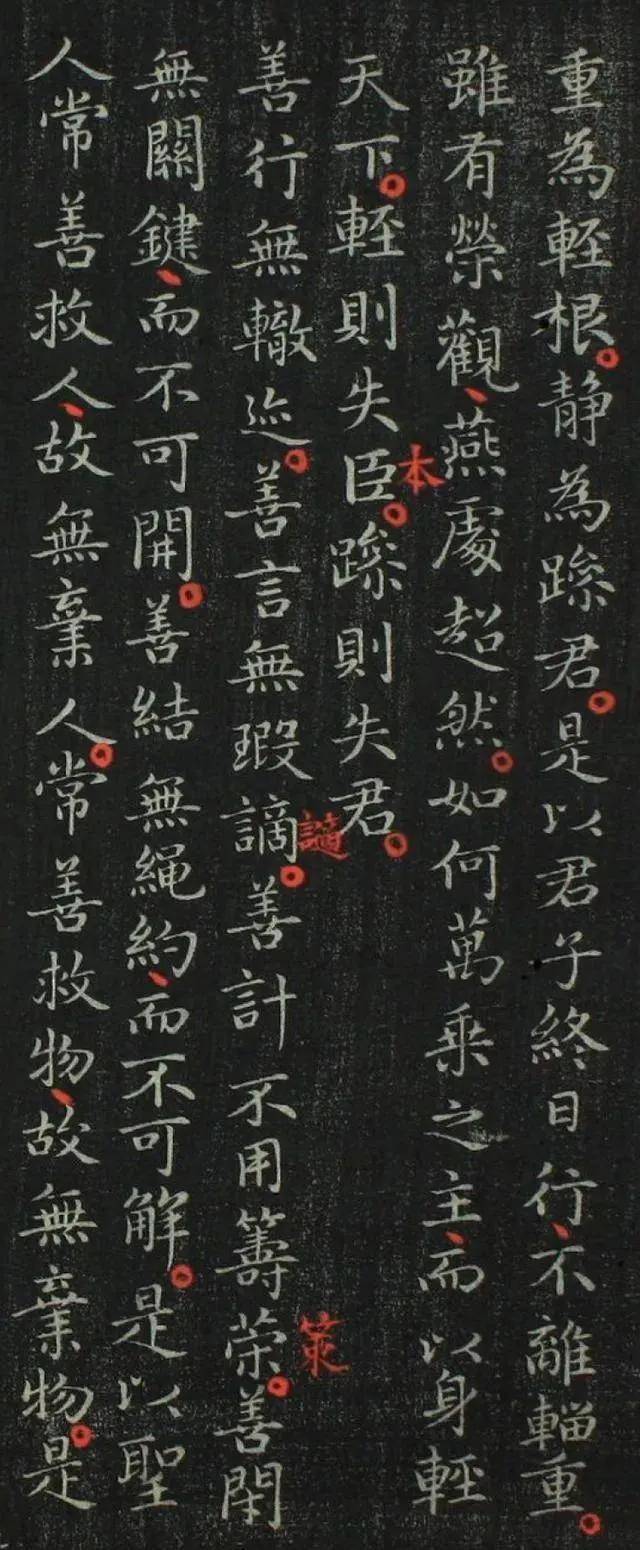 重為輕根。静為躁君。是以君子終日行、不離輜重。
雖有榮觀、燕處超然。如何萬乘之主、而以身輕
天下。輕則失臣。躁則失君。
本
善行無轍迹。善言無瑕謫。善計不用籌荣。善閇
讁
筞
無關鍵、而不可開。善結無繩約、而不可解。是以聖
人常善救人、故無棄人。常善救物、故無棄物。是